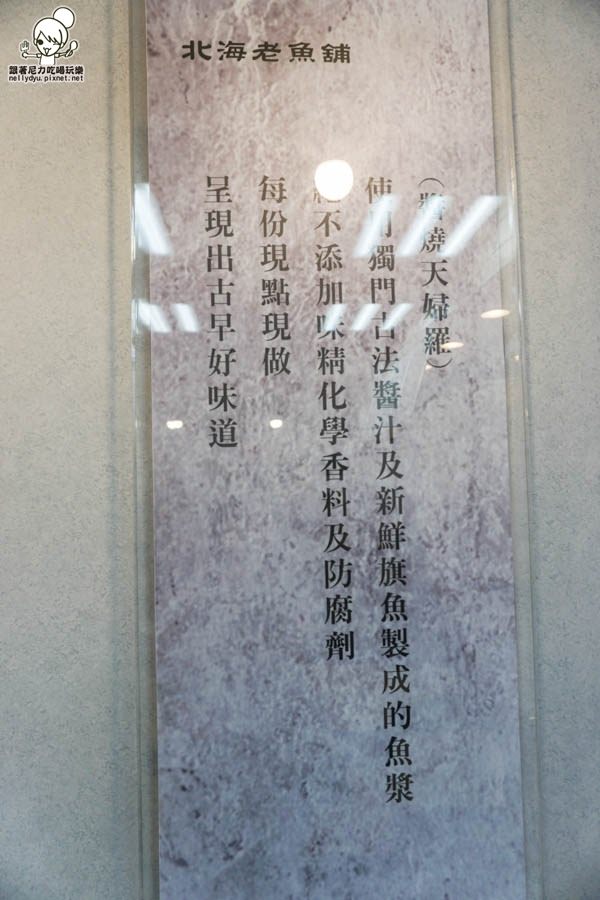 跟著尼力吃喝玩樂
nellydyu.pixnet.net
北海老魚舖
(醬燒天婦羅)
使用獨門古法醬汁及新鮮旗魚製成的魚漿
不添加味精化學香料及防腐劑
每份現點現做
呈現出古早好味道